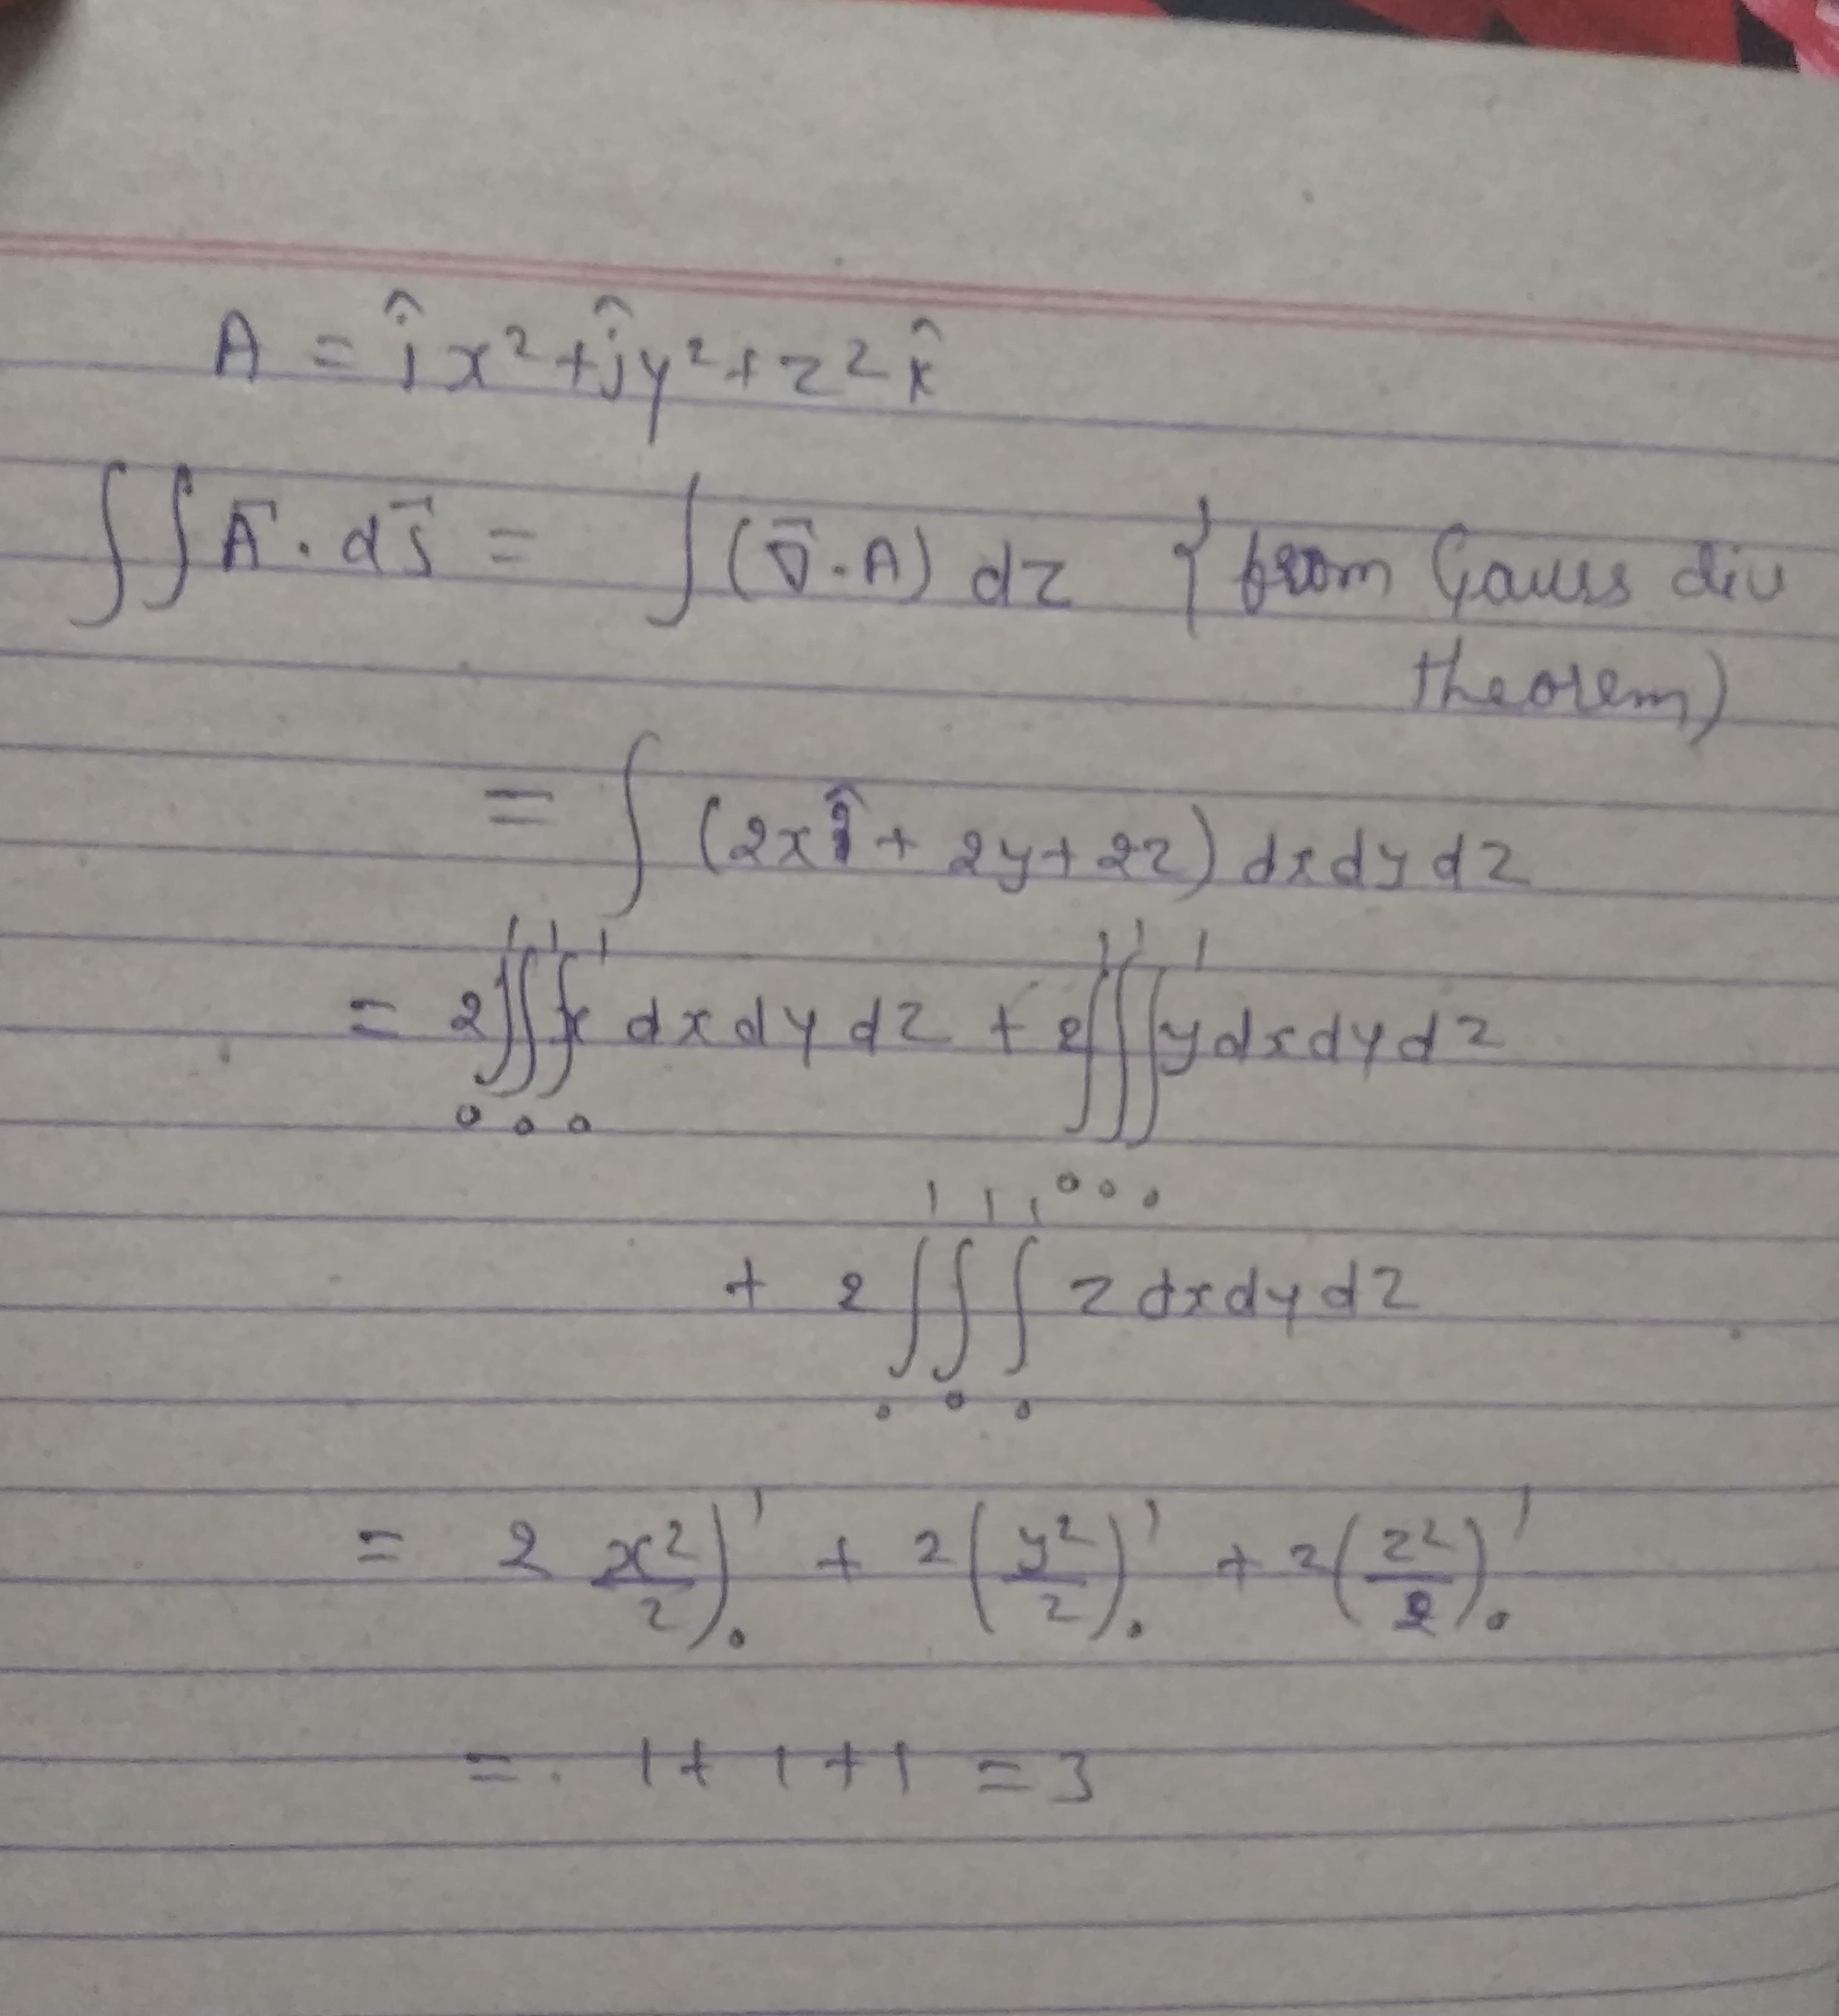 A = î x² + ĵy² + z² k̂
∫∫ A⃗ . ds⃗ = ∫(∇⃗.A) dz { from Gauss div
theorem)
= ∫ (2x + 2y + 2z) dxdydz
= 2∫₀¹∫₀¹∫₀¹ x dxdydz + 2∫₀¹∫₀¹∫₀¹ y dxdydz
+ 2∫₀¹∫₀¹∫₀¹ z dxdydz
= 2 x²/2)₀¹ + 2(y²/2)₀¹ + 2(z²/2)₀¹
= 1+1+1 = 3